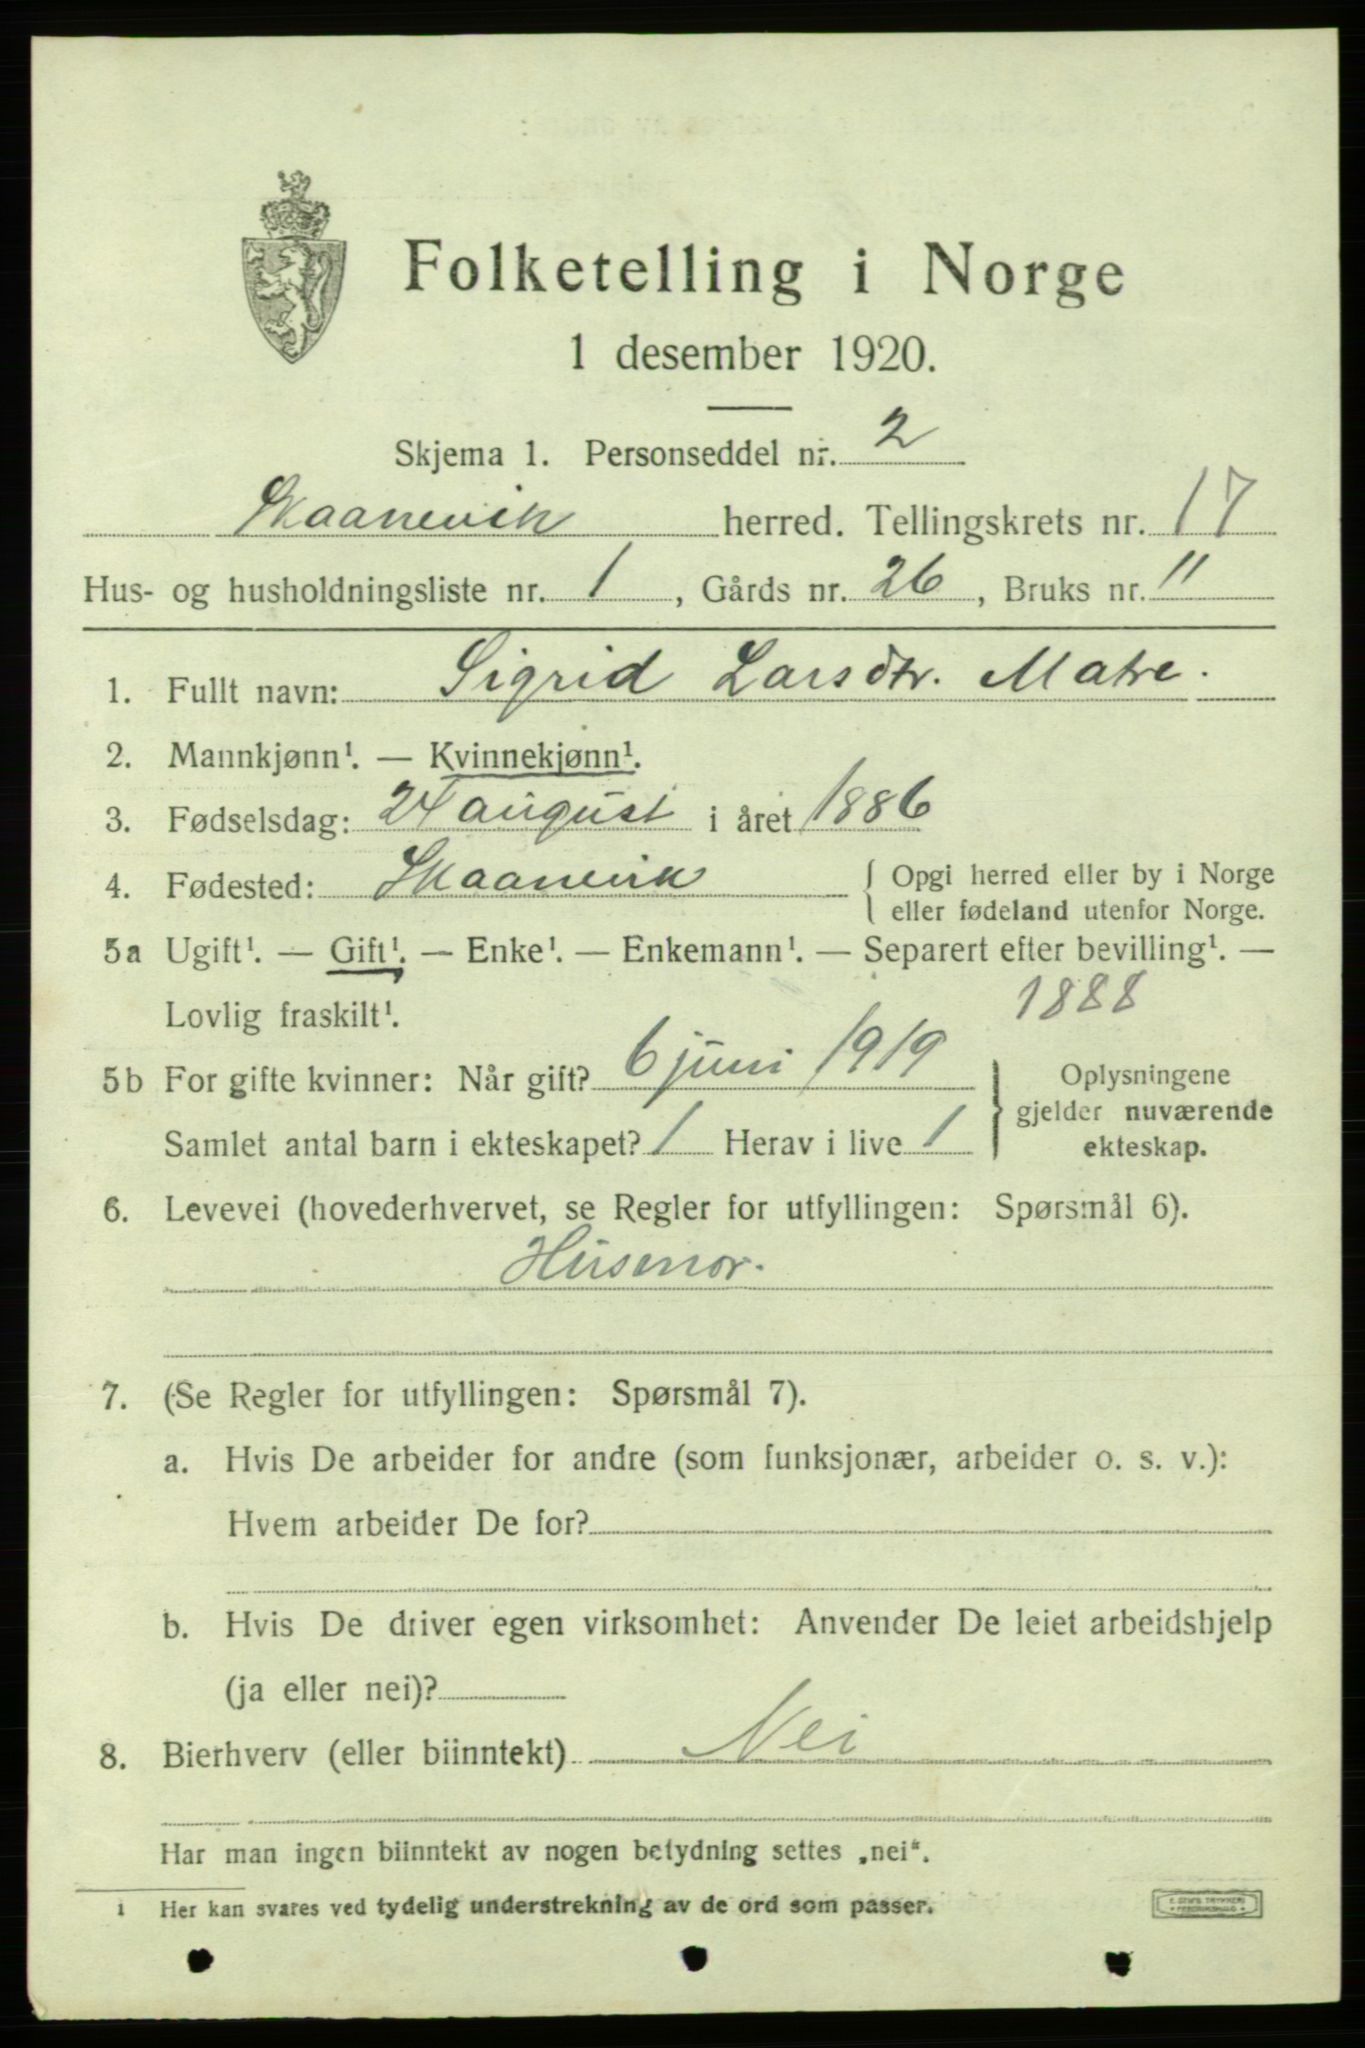 Folketelling i Norge
1 desember 1920.
Skjema 1. Personseddel nr. 2
Skaanevik herred. Tellingskrets nr. 17
Hus- og husholdningsliste nr. 1, Gårds nr. 26, Bruks nr. 11
1. Fullt navn: Sigrid Larsdtr. Matre.
2. Mannkjønn¹. — Kvinnekjønn¹.
3. Fødselsdag: 24 august i året 1886
4. Fødested: Skaanevik { Opgi herred eller by i Norge
eller fødeland utenfor Norge.
5a Ugift¹. — Gift¹. — Enke¹. — Enkemann¹. — Separert efter bevilling¹. —
Lovlig fraskilt¹. 1888
5b For gifte kvinner: Når gift? 6 juni 1919 } Oplysningene
gjelder nuværende
Samlet antal barn i ekteskapet? 1 Herav i live 1 ekteskap.
6. Levevei (hovederhvervet, se Regler for utfyllingen: Spørsmål 6).
Husmor.
7. (Se Regler for utfyllingen: Spørsmål 7).
a. Hvis De arbeider for andre (som funksjonær, arbeider o. s. v.):
Hvem arbeider De for?
b. Hvis De driver egen virksomhet: Anvender De leiet arbeidshjelp
(ja eller nei)?
8. Bierhverv (eller biinntekt) Nei
Har man ingen biinntekt av nogen betydning settes „nei“.
1 Her kan svares ved tydelig understrekning av de ord som passer.